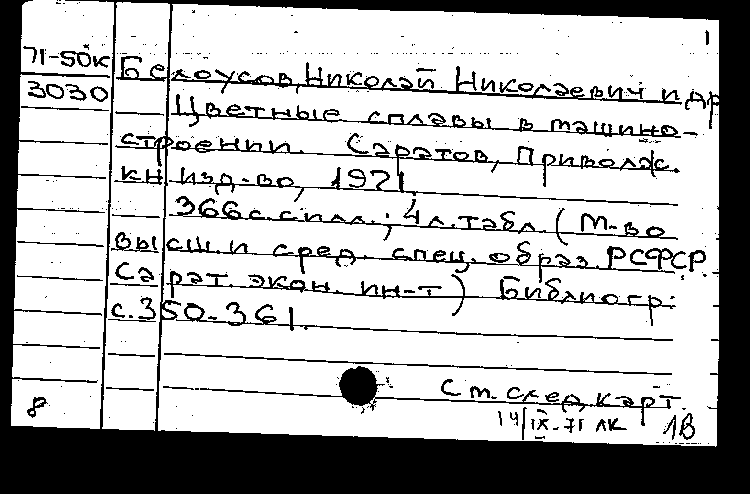 1
71-50к Белоусов, Николай Николаевич и др
3030 Цветные сплавы в машино-
строении. Саратов, Приволж.
кн. изд-во, 1971.
366 с. с илл.; 4 л. табл. (М-во
высш. и сред. спец. образ. РСФСР.
Сарат. экон. ин-т) Библиогр:
с. 350-361.
См. след. карт.
8 14/IX-71 лк 1В